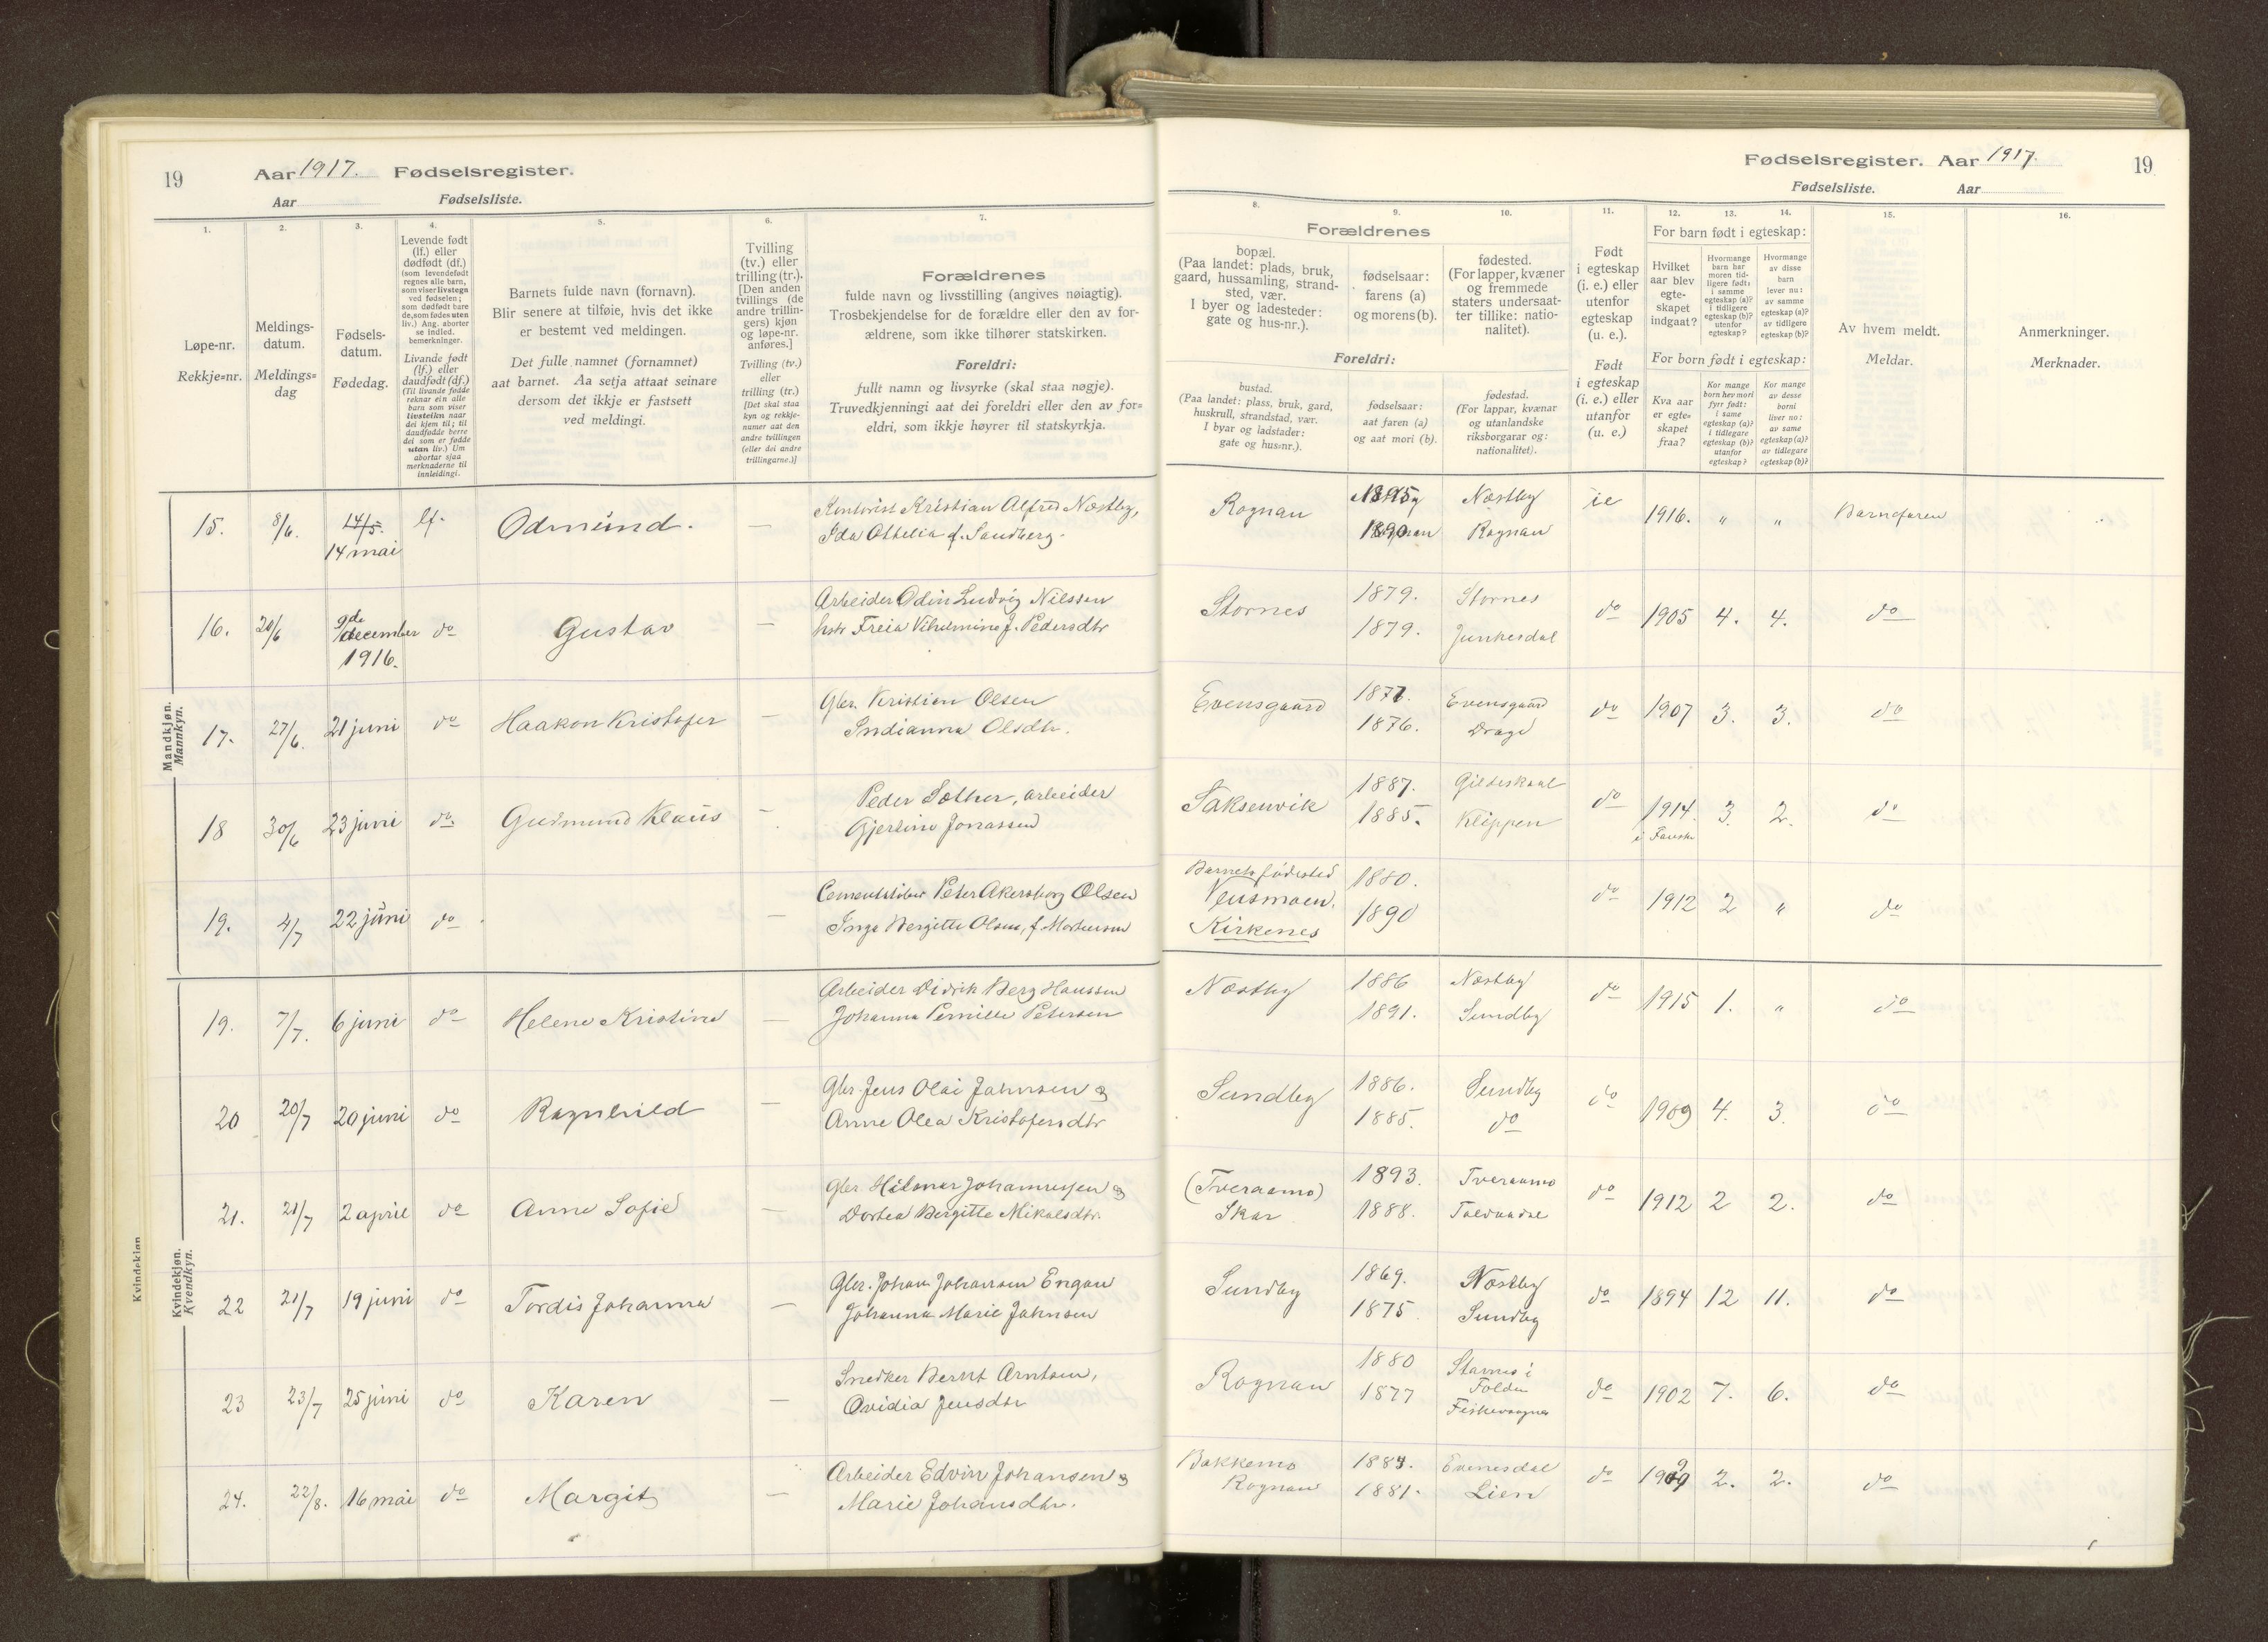 19 Aar 1917. Fødselsregister.
Aar Fødselsliste.
1. 2. 3. 4. 5. 6. 7.
Løpe-nr.
Rekkje=nr.
Meldings-
datum.
Meldings=
dag
Fødsels-
datum.
Fødedag.
Levende født
(lf.) eller
dødfødt (df.)
(som levendefødt
regnes alle barn,
som viser livstegn
ved fødselen;
som dødfødt bare
de, som fødes uten
liv.) Ang. aborter
se indled.
bemerkninger.
Livande født
(lf.) eller
daudfødt (df.)
(Til livande fødde
reknar ein alle
barn som viser
livsteikn naar
dei kjem til; til
daudfødde berre
dei som er fødde
utan liv.) Um
abortar sjaa
merknaderne til
innleidingi.
Barnets fulde navn (fornavn).
Blir senere at tilføie, hvis det ikke
er bestemt ved meldingen.
Det fulle namnet (fornamnet)
aat barnet. Aa setja attaat seinare
dersom det ikkje er fastsett
ved meldingi.
Tvilling
(tv.) eller
trilling (tr.).
[Den anden
tvillings (de
andre trillin-
gers) kjøn
og løpe-nr.
anføres.]
Tvilling (tv.)
eller
trilling (tr.)
[Det skal staa
kyn og rekkje-
numer aat den
andre tvillingen
(eller dei andre
trillingarne.)]
Forældrenes
fulde navn og livsstilling (angives nøiagtig).
Trosbekjendelse for de forældre eller den av for-
ældrene, som ikke tilhører statskirken.
Foreldri:
fullt namn og livsyrke (skal staa nøgje).
Truvedkjenningi aat dei foreldri eller den av for=
eldri, som ikkje høyrer til statskyrkja.
Mandkjøn.
Mannkyn.
15. 8/6. 14/5. lf. Odmund. — Kontorist Kristian Alfred Næstby,
14 mai Ida Othelia f. Sandberg.
16. 20/6 9de december do Gustav — Arbeider Odin Ludvig Nilssen
1916. hstr Freia Vilhelmine f. Pedersdtr
17. 27/6. 21 juni do Haakon Kristofer — Gbr. Kristian Olsen
Indianna Olsdtr.
18 30/6 23 juni do. Gudmund Klaus — Peder Sæther, arbeider
Gjertine Jonassen
19. 4/7 22 juni do — Peter Akersborg Olsen
Inga Bergitte Olsen, f. Mortensen
Kvindekjøn
Kvindekjøn.
Kvendkyn.
19. 7/7. 6 juni do Helene Kristine — Arbeider Didrik Berg Hanssen
Johanna Pernille Petersen
20 20/7 20 juni do Ragnhild — Gbr. Jens Olai Jahnsen &
Anne Olea Kristofersdtr
21. 21/7 2 april do Anne Sofie — Gbr. Hilmar Johannessen &
Dortea Bergitte Mikalsdtr.
22 21/7 19 juni do Tordis Johanna — Gbr. Johan Johansen Engan
Johanna Marie Jahnsen
23 23/7 25 juni do Karen — Snedker Bernt Arntsen,
Ovidia Jensdtr
24. 22/8. 16 mai do Margit — Arbeider Edvin Johansen &
Marie Johansdtr.
Fødselsregister. Aar 1917. 19
Fødselsliste. Aar
8. 9. 10. 11. 12. 13. 14. 15. 16.
Forældrenes
bopæl.
(Paa landet: plads, bruk,
gaard, hussamling, strand-
sted, vær.
I byer og ladesteder:
gate og hus-nr.).
Foreldri:
bustad.
(Paa landet: plass, bruk, gard,
huskrull, strandstad, vær.
I byar og ladstader:
gate og hus=nr.).
fødselsaar:
farens (a)
og morens (b).
fødselsaar:
aat faren (a)
og aat mori (b).
fødested.
(For lapper, kvæner
og fremmede
staters undersaat-
ter tillike: natio-
nalitet).
fødestad.
(For lappar, kvænar
og utanlandske
riksborgarar og:
nationalitet).
Født
i egteskap
(i. e.) eller
utenfor
egteskap
(u. e.).
Født
i egteskap
(i. e.) eller
utanfor
(u. e.)
For barn født i egteskap:
Hvilket
aar blev
egte-
skapet
indgaat?
Hvormange
barn har
moren tid-
ligere født:
i samme
egteskap (a)?
i tidligere
egteskap (b)?
utenfor
egteskap?
Hvormange
av disse
barn
lever nu:
av samme
egteskap (a)?
av tidligere
egteskap (b)?
For born født i egteskap:
Kva aar
er egte=
skapet
fraa?
Kor mange
born hev mori
fyrr født:
i same
egteskap (a)?
i tidlegare
egteskap (b)?
utanfor
egteskap?
Kor mange
av desse
borni
liver no:
av same
egteskap (a)?
av tidlegare
egteskap (b)?
Av hvem meldt.
Meldar.
Anmerkninger.
Merknader.
Rognan 1895 Næstby ie 1916. „ „ Barnefaren
1890 Rognan
Stornes 1879. Stornes do 1905 4. 4. do
1879. Junkesdal
Evensgaard 1877. Evensgaard do 1907 3. 3. do
1876. Drage
Saksenvik 1887. Gildeskaal do 1914. 3. 2. do
1885. Klippen i Fauske
Barnets fødested 1880. do 1912 2 „ do
Kirkenes 1890
Næstby 1886 Næstby do 1915 1. „ do
1891. Sundby
Sundby 1886. Sundby do 1909 4. 3. do
1885. do
(Tveraamo) 1893. Tveraamo do 1912 2 2. do
Skar 1888.
Sundby 1869. Næstby do 1894 12 11. do
1875 Sundby
Rognan 1880 Stavnes i do 1902 7. 6. do
1877 Folden
Fiskevaagnes
Bakkemo 1884. Evenesdal do 1909 2. 2. do
Rognan 1881. Lien